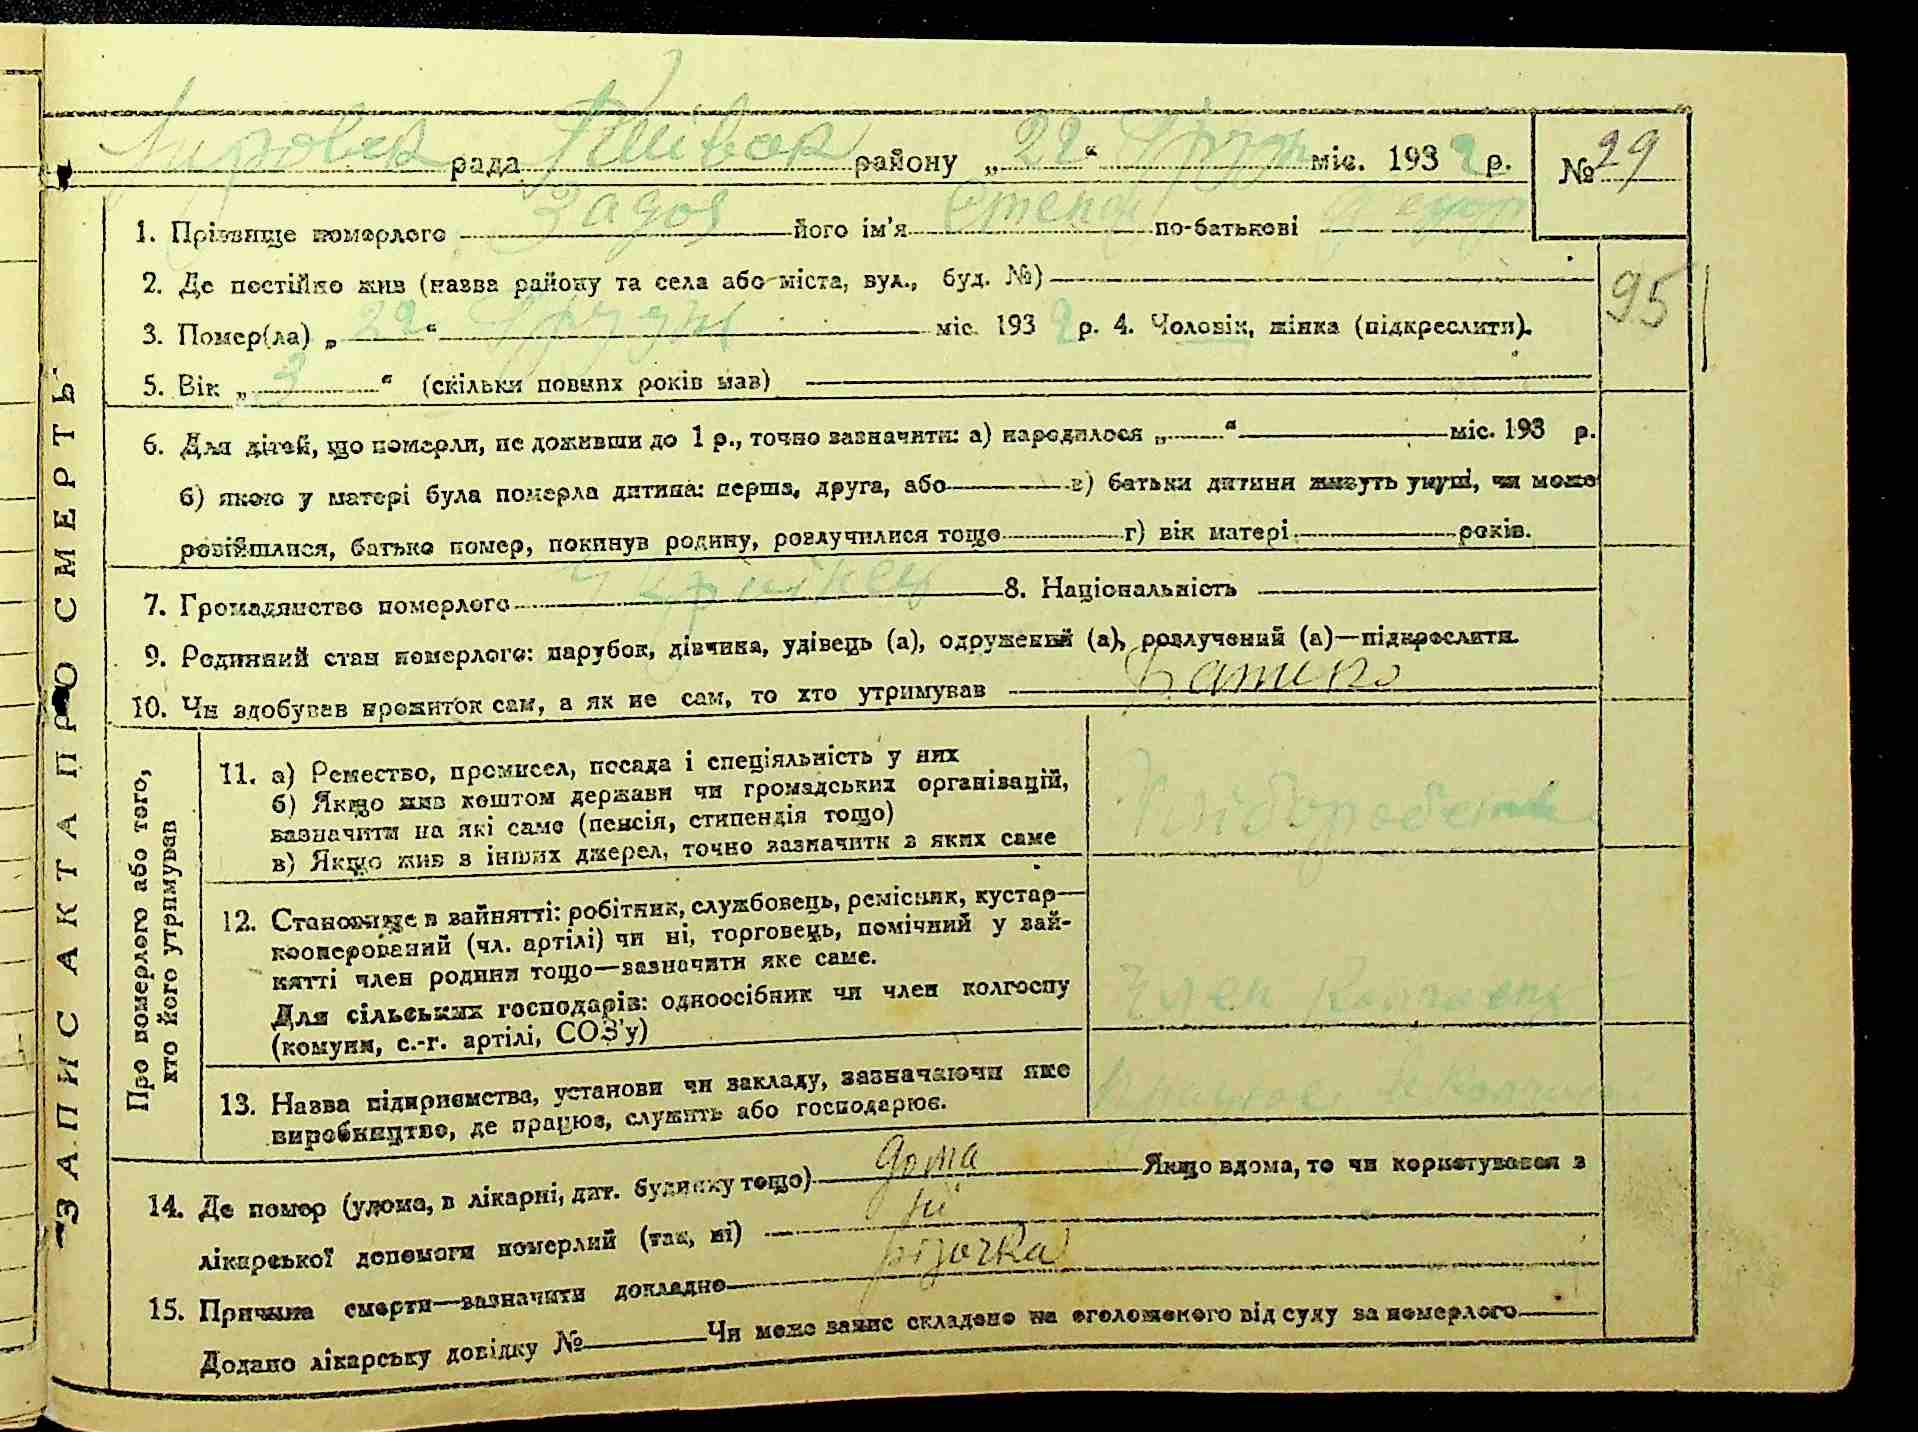 рада району „22“ Грудн міс. 1932 р. № 29
1. Прізвище померлого його ім'я Степан по-батькові Федор
2. Де постійно жив (назва району та села або міста, вул., буд. №)
95
3. Помер(ла) „22“ Грудн міс. 1932 р. 4. Чоловік, жінка (підкреслити).
5. Вік „3“ (скільки повних років мав)
6. Для дітей, що померли, не доживши до 1 р., точно зазначити: а) народилося „ “ міс. 193 р.
б) якою у матері була померла дитина: перша, друга, або в) батьки дитини живуть укупі, чи може
розійшлися, батько помер, покинув родину, розлучилися тощо г) вік матері років.
7. Громадянство померлого Українец 8. Національність
9. Родинний стан померлого: парубок, дівчина, удівець (а), одружений (а), розлучений (а)—підкреслити.
10. Чи здобував прожиток сам, а як не сам, то хто утримував Батько
ЗАПИС АКТА ПРО СМЕРТЬ
Про померлого або того, хто його утримував
11. а) Ремество, промисел, посада і спеціяльність у них
б) Якщо жив коштом держави чи громадських організацій,
зазначити на які саме (пенсія, стипендія тощо)
в) Якщо жив з інших джерел, точно зазначити з яких саме
12. Становище в зайнятті: робітник, службовець, ремісник, кустар—
кооперований (чл. артілі) чи ні, торговець, помічний у зай-
нятті член родини тощо—зазначити яке саме.
Для сільських господарів: одноосібник чи член колгоспу
(комуни, с.-г. артілі, СОЗ'у)
Член Колгоспу
13. Назва підприємства, установи чи закладу, зазначаючи яке
виробництво, де працює, служить або господарює.
14. Де помер (удома, в лікарні, дит. будинку тощо) дома Якщо вдома, то чи користувався з
лікарської допомоги померлий (так, ні) ні
15. Причина смерти—зазначити докладно різочка
Додано лікарську довідку № Чи може запис складено на оголошеного від суду за померлого